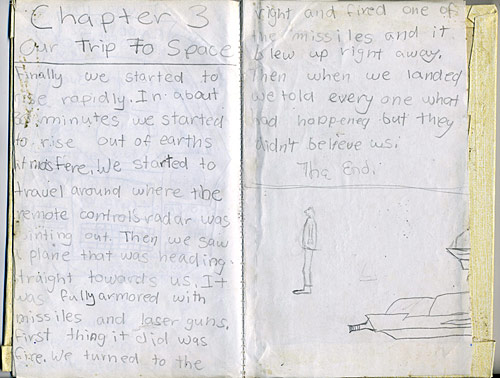 Chapter 3
Our Trip To Space
Finally we started to
rise rapidly. In about
minutes we started
to rise out of earths
atmosfere. We started to
travel around where the
remote controls radar was
pointing out. Then we saw
a plane that was heading
straight towards us. It
was fully armored with
missiles and laser guns.
First thing it did was
fire. We turned to the
right and fired one of
the missiles and it
blew up right away.
Then when we landed
we told every one what
had happened but they
didn't believe us.
The End.